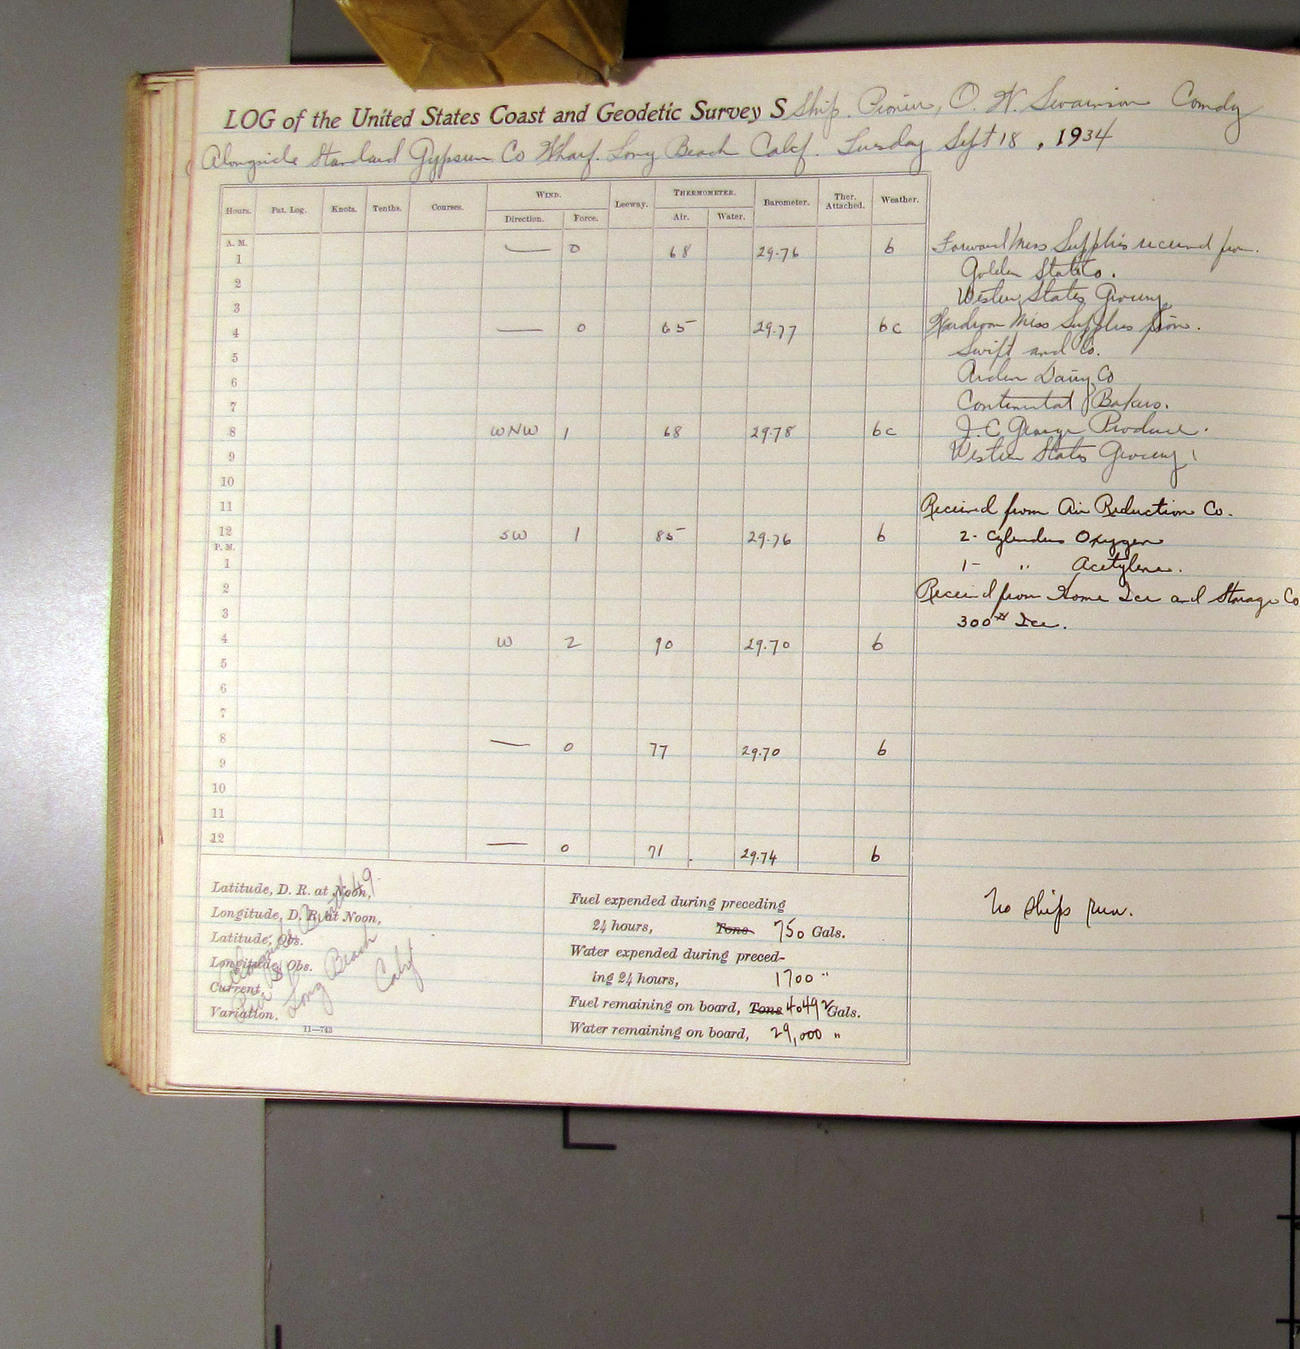 LOG of the United States Coast and Geodetic Survey S Ship. Pioneer, O. W. Swainson Comdg
Alongside Standard Gypsum Co Wharf. Long Beach Calif. Tuesday Sept 18, 1934
Hours. Pat. Log. Knots. Tenths. Courses. WIND. Leeway. THERMOMETER. Barometer. Ther. Attached. Weather.
Direction. Force. Air. Water.
A. M.
1 — 0 68 29.76 b
2
3
4 — 0 65 29.77 bc
5
6
7
8 WNW 1 68 29.78 bc
9
10
11
12 SW 1 85 29.76 b
P. M.
1
2
3
4 W 2 90 29.70 b
5
6
7
8 — 0 77 29.70 b
9
10
11
12 — 0 71 29.74 b
Forward Mess Supplies received from.
Golden State Co.
Western States Grocery
Wardroom Mess Supplies from.
Swift and Co.
Arden Dairy Co
Continental Bakers.
J. C. George Produce.
Western States Grocery
Received from Air Reduction Co.
2- Cylinders Oxygen
1- " Acetylene.
Received from Home Ice and Storage Co
300# Ice.
No ships run.
Latitude, D. R. at Noon,
Longitude, D. R. at Noon,
Latitude, Obs.
Longitude, Obs.
Current,
Variation.
Long Beach
Calif
11—743
Fuel expended during preceding
24 hours, Tons 750 Gals.
Water expended during preced-
ing 24 hours, 1700 "
Fuel remaining on board, Tons 40492 Gals.
Water remaining on board, 29,000 "